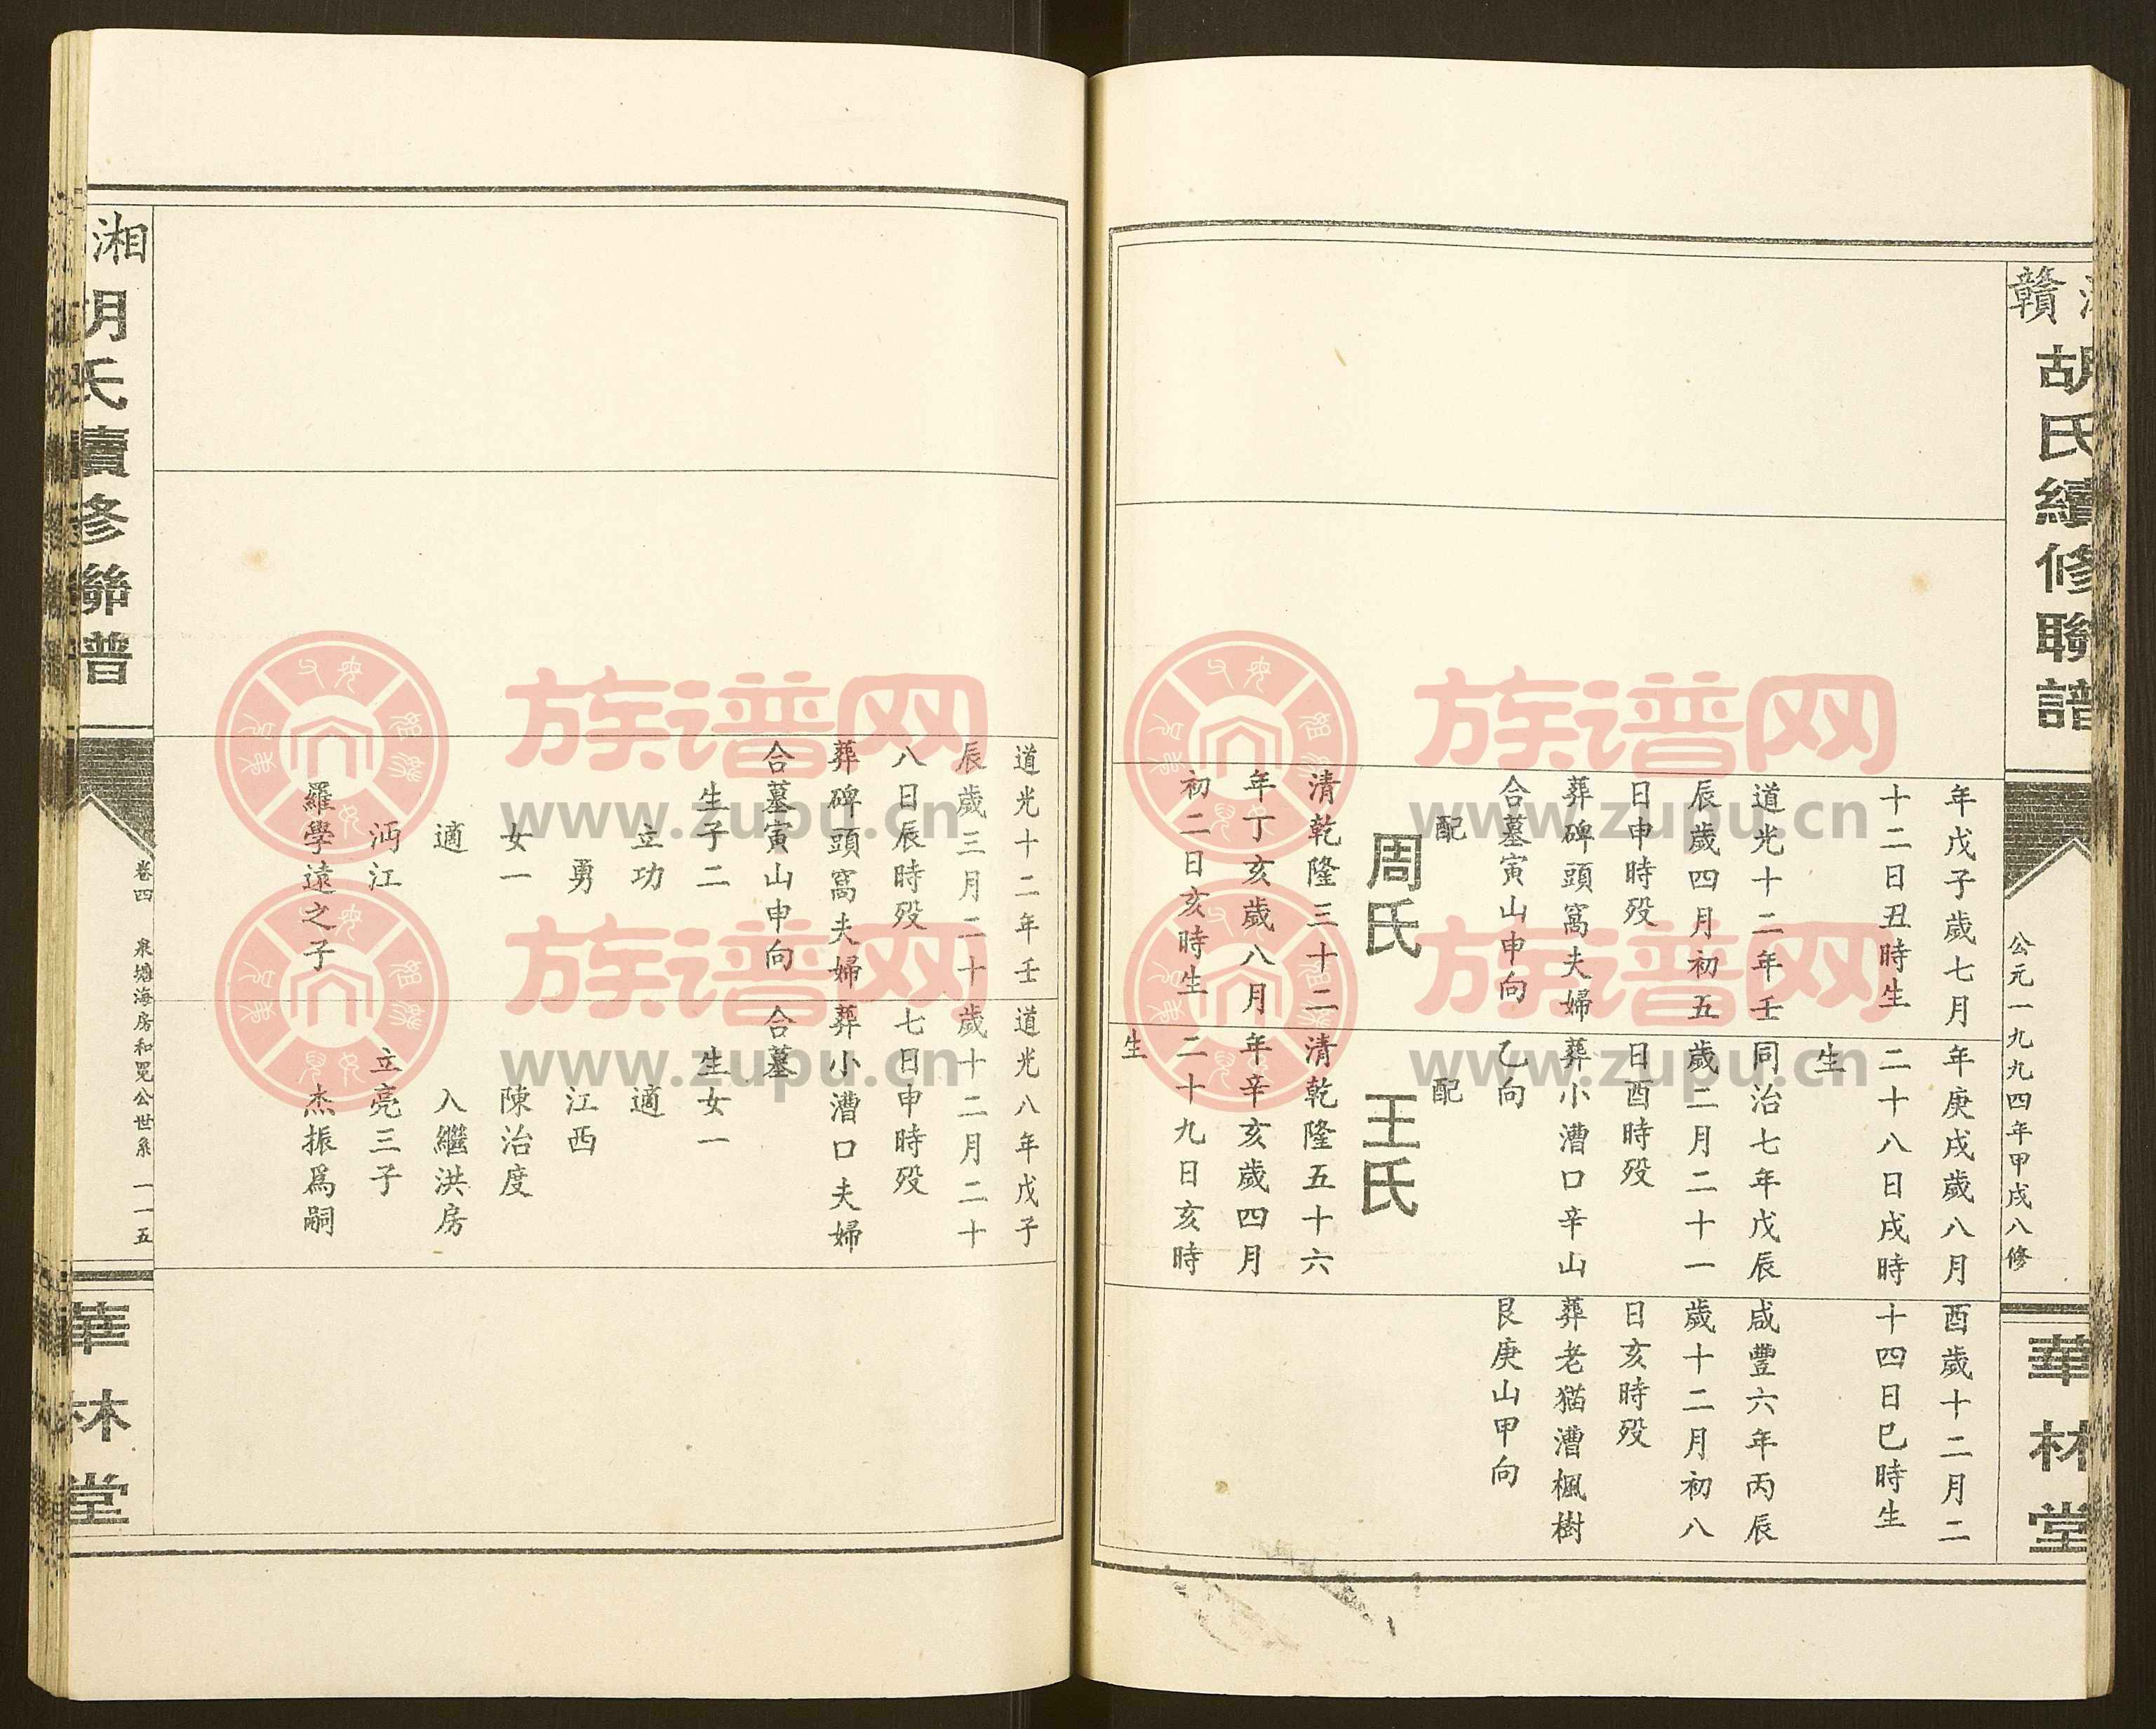 贛
胡氏續修聯譜
公元一九九四年甲戌八修
華林堂
年戊子歲七月
十二日丑時生
道光十二年壬
辰歲四月初五
日申時殁
葬碑頭窩夫婦
合墓寅山申向
配
周氏
清乾隆三十二
年丁亥歲八月
初二日亥時生
年庚戌歲八月
二十八日戌時
生
同治七年戊辰
歲二月二十一
日酉時殁
葬小漕口辛山
乙向
配
王氏
清乾隆五十六
年辛亥歲四月
二十九日亥時
生
酉歲十二月二
十四日巳時生
咸豐六年丙辰
歲十二月初八
日亥時殁
葬老猫漕楓樹
艮庚山甲向
道光十二年壬
辰歲三月二十
八日辰時殁
葬碑頭窩夫婦
合墓寅山申向
生子二
立功
勇
女一
適
沔江
羅學遠之子
道光八年戊子
歲十二月二十
七日申時殁
葬小漕口夫婦
合墓
生女一
適
江西
陳治度
入繼洪房
立亮三子
杰振爲嗣
湘
胡氏續修聯譜
卷四
泉塘海房和冕公世系
一一五
華林堂
族谱网
www.zupu.cn
族谱网
www.zupu.cn
族谱网
www.zupu.cn
族谱网
www.zupu.cn